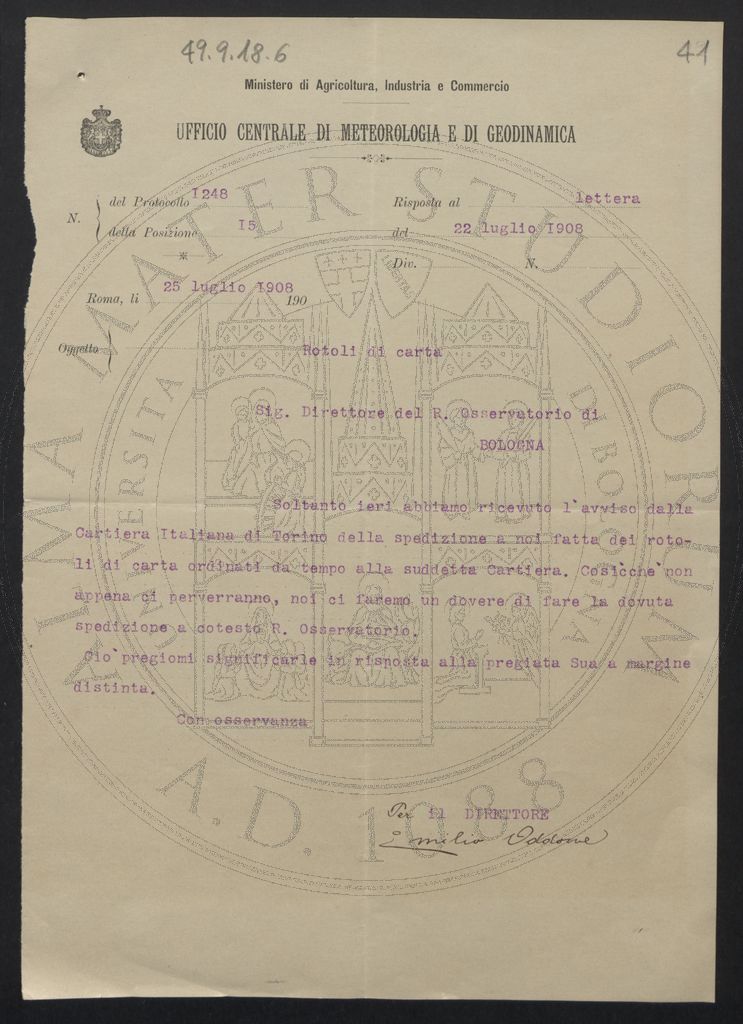 49.9.18.6
41
Ministero di Agricoltura, Industria e Commercio
UFFICIO CENTRALE DI METEOROLOGIA E DI GEODINAMICA
N. del Protocollo 1248
della Posizione 15
Risposta al lettera
del 22 luglio 1908
Div. N.
Roma, li 25 luglio 1908 190
Oggetto Rotoli di carta
Sig. Direttore del R. Osservatorio di
BOLOGNA
Soltanto ieri abbiamo ricevuto l'avviso dalla
Cartiera Italiana di Torino della spedizione a noi fatta dei roto-
li di carta ordinati da tempo alla suddetta Cartiera. Cosicche' non
appena ci perverranno, noi ci faremo un dovere di fare la dovuta
spedizione a cotesto R. Osservatorio.
Cio' pregiomi significarle in risposta alla pregiata Sua a margine
distinta.
Con osservanza
Per il DIRETTORE
Emilio Oddone
ALMA MATER STUDIORUM
A.D. 1088
LIBERTAS